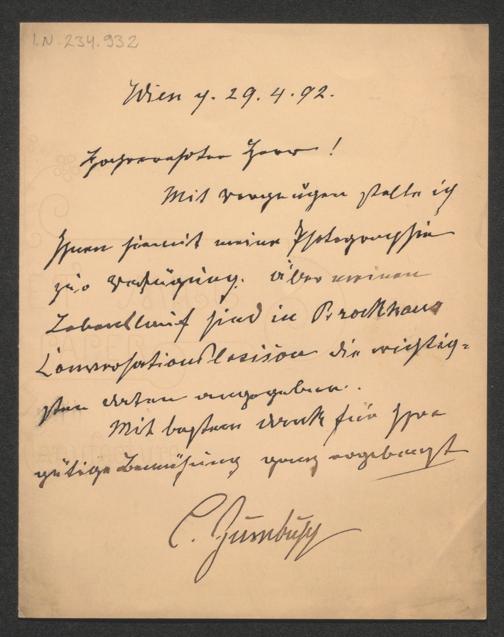 I.N. 234.932
Wien d. 29.4.92.
Hochverehrter Herr!
Mit vergnügen stelle ich
Ihnen hiemit meine Photographie
zur verfügung. Über meinen
Lebenslauf sind in Brockhaus
Conversationslexikon die wichtig-
sten daten angegeben.
Mit bestem dank für Ihre
gütige Bemühung ganz ergebenst
C. Zumbusch